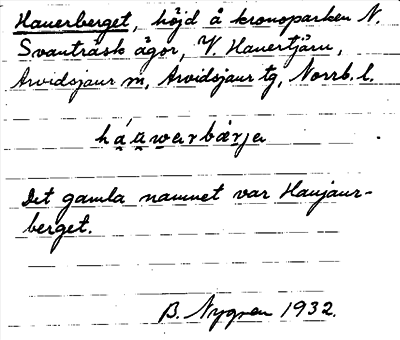 Hauerberget, höjd å kronoparken N.
Svanträsk ägor, V. Hauertjärn,
Arvidsjaur sn, Arvidsjaur tg, Norrb. l.
Det gamla namnet var Haujaur-
berget.
B. Nygren 1932.